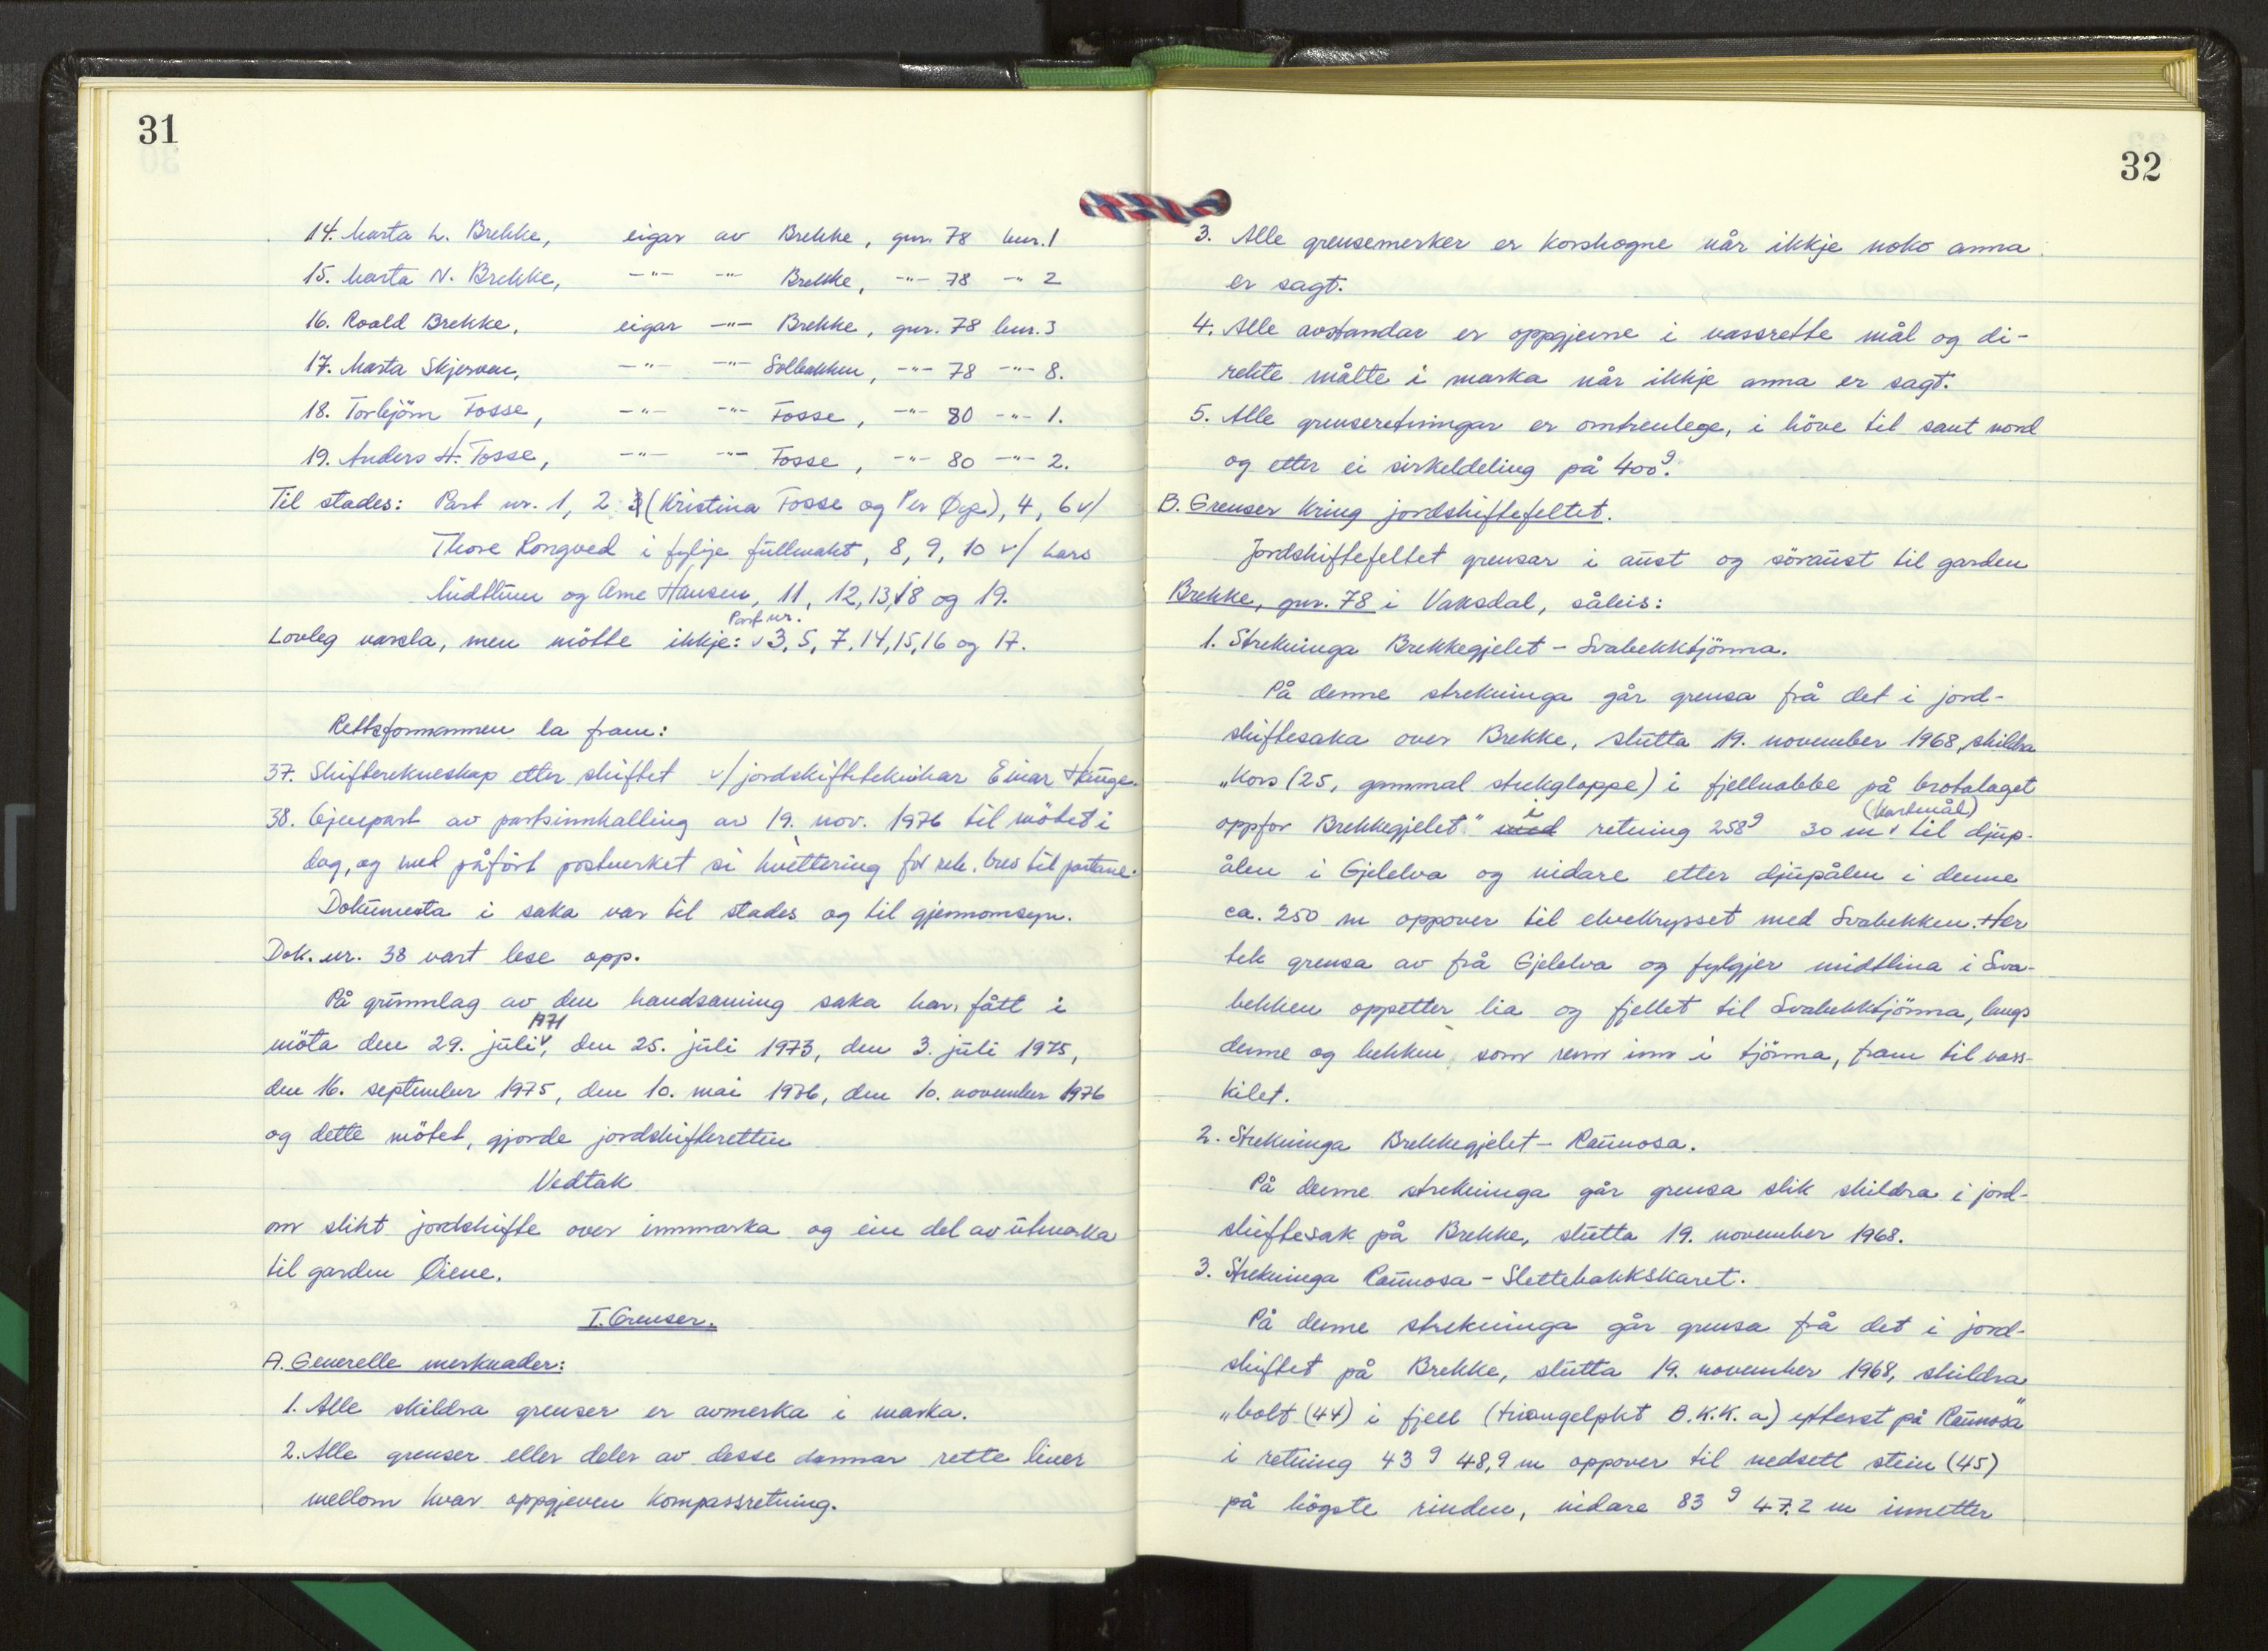 31
14. Marta L. Brekke, eigar av Brekke, gnr. 78 bnr. 1
15. Marta N. Brekke, -"- -"- Brekke, -"- 78 -"- 2
16. Roald Brekke, eigar -"- Brekke, gnr. 78 bnr. 3
17. Marta Skjerven, -"- -"- Solbakken, -"- 78 -"- 8.
18. Torbjörn Fosse, -"- -"- Fosse, -"- 80 -"- 1.
19. Anders H. Fosse, -"- -"- Fosse, -"- 80 -"- 2.
Til stades: Part nr. 1, 2 3 (Kristina Fosse og Per Øye), 4, 6 v/
Thore Rongved i fylgje fullmakt, 8, 9, 10 v/ Lars
Midttun og Arne Hansen, 11, 12, 13, 18 og 19.
Part nr.
Lovleg varsla, men mötte ikkje: 3, 5, 7, 14, 15, 16 og 17.
Rettsformannen la fram:
37. Skifterekneskap etter skiftet v/ jordskifteteknikar Einar Hauge.
38. Gjenpart av partsinnkalling av 19. nov. 1976 til mötet i
dag, og med påfört postverket si kvittering for rek. brev til partane.
Dokumenta i saka var til stades og til gjennomsyn.
Dok. nr. 38 vart lese opp.
På grunnlag av den handsaming saka har fått i
1971
möta den 29. juli, den 25. juli 1973, den 3. juli 1975,
den 16. september 1975, den 10. mai 1976, den 10. november 1976
og dette mötet, gjorde jordskifteretten
Vedtak
om slikt jordskifte over innmarka og ein del av utmarka
til garden Øiene.
I. Grenser.
A. Generelle merknader:
1. Alle skildra grenser er avmerka i marka.
2. Alle grenser eller deler av desse dannar rette liner
mellom kvar oppgjeven kompassretning.
32
3. Alle grensemerker er korshogne når ikkje noko anna
er sagt.
4. Alle avstandar er oppgjevne i vassrette mål og di-
rekte målte i marka når ikkje anna er sagt.
5. Alle grenseretningar er omtrenlege, i höve til sant nord
og etter ei sirkeldeling på 400g.
B. Grenser kring jordskiftefeltet.
Jordskiftefeltet grensar i aust og söraust til garden
Brekke, gnr. 78 i Vaksdal, såleis:
1. Strekninga Brekkegjelet - Svabekktjörnna.
På denne strekninga går grensa frå det i jord-
skiftesaka over Brekke, slutta 19. november 1968, skildra
„Kors (25, gammal stekgloppe) i fjellnabbe på brotalaget
i (kartmål)
oppfor Brekkegjelet" med retning 258g 30 m til djup-
ålen i Gjelelva og vidare etter djupålen i denne
ca. 250 m oppover til elvekrysset med Svabekken. Her
tek grensa av frå Gjelelva og fylgjer midtlina i Sva-
bekken oppetter lia og fjellet til Svabekktjönna, langs
denne og bekken som renn inn i tjönna, fram til vass-
kilet.
2. Strekninga Brekkegjelet - Raunosa.
På denne strekninga går grensa slik skildra i jord-
skiftesak på Brekke, slutta 19. november 1968.
3. Strekninga Raunosa - Slettebakkskaret.
På denne strekninga går grensa frå det i jord-
skiftet på Brekke, slutta 19. november 1968, skildra
„bolt (44) i fjell (triangelpkt B.K.K. a) ytterst på Raunosa"
i retning 43g 48,9 m oppover til nedsett stein (45)
på högste rinden, vidare 83g 47.2 m innetter